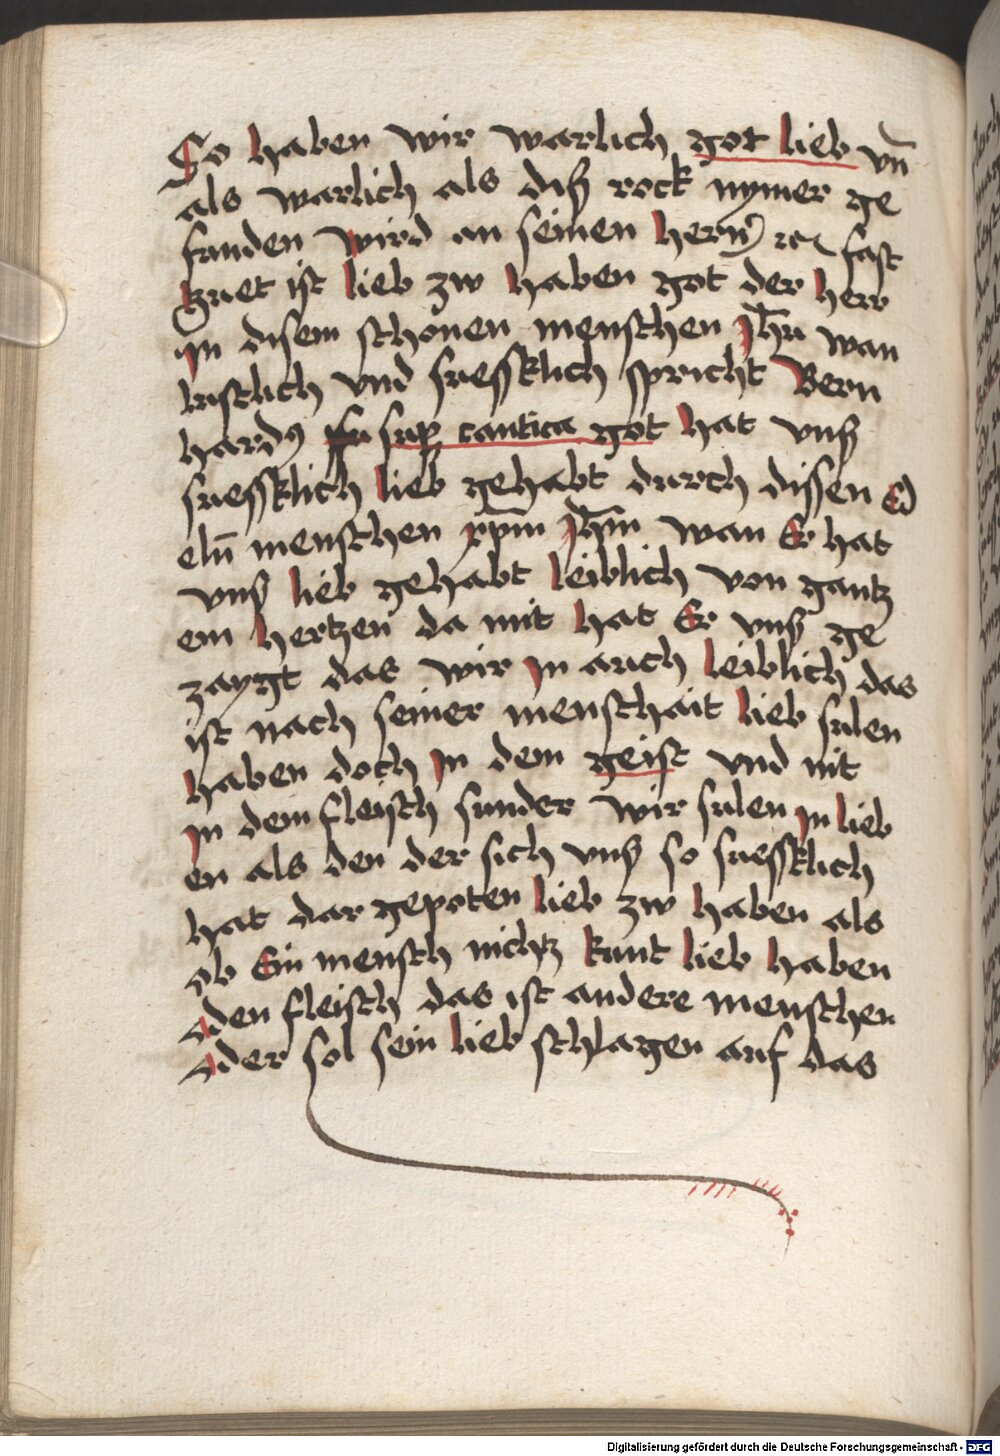 So haben wir warlich got lieb vn̄
als warlich als diß rock nymer ge
funden wird an seinen hern̄ ꝛc fast
guet ist lieb zw haben got der herr
in disem schönen menschen Jhū wan
lustlich vnd suessklich spricht Bern
hardꝰ sup̄ cantica got hat vnß
suessklich lieb gehabt durch dissen Ed
eln̄ menschen xp̄m Jhm̄ wan Er hat
vnß lieb gehabt leiblich von gantz
em hertzen da mit hat Er vnß ge
zaygt das wir jn auch leiblich das
ist nach seiner menschait lieb sulen
haben doch jn dem geist vnd nit
jn dem fleisch sunder wir sulen jn lieb
en als den der sich vnß so suessklich
hat dar gepoten lieb zw haben als
ob Ein mensch nichtz kunt lieb haben
den fleisch das ist andere menschen
der sol sein lieb schlagen auf das
Digitalisierung gefördert durch die Deutsche Forschungsgemeinschaft - DFG